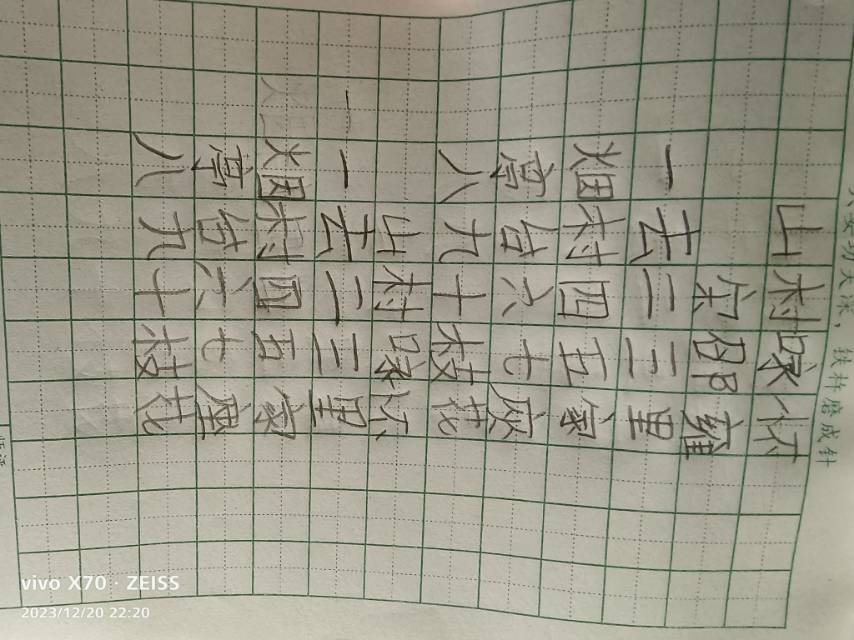 只要功夫深，铁杵磨成针
山村咏怀
宋邵雍
一去二三里
烟村四五家
亭台六七座
八九十枝花
山村咏怀
一去二三里
烟村四五家
亭台六七座
八九十枝花
vivo X70 · ZEISS
2023/12/20 22:20